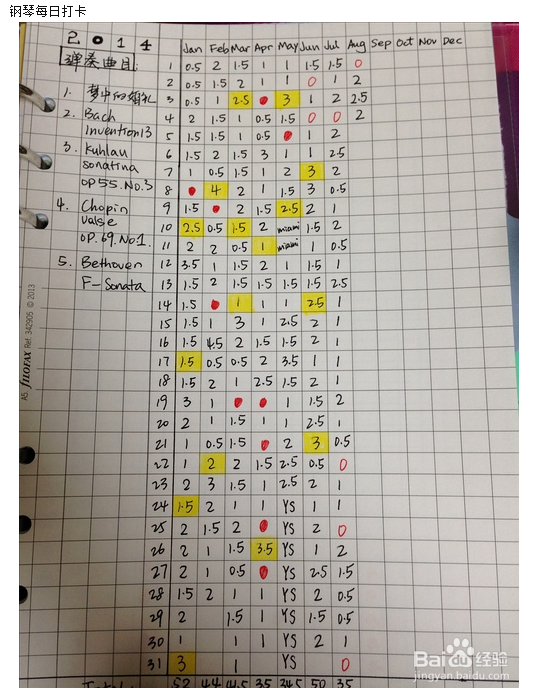 钢琴每日打卡
2014
Jan Feb Mar Apr May Jun Jul Aug Sep Oct Nov Dec
弹奏曲目:
1. 梦中的婚礼
2. Bach
Invention13
3. Kuhlau
sonatina
op55.No.3
4. Chopin
valse
op.69.No1.
5. Bethoven
F-Sonata
1 0.5 2 1.5 1 1 1.5 1.5 0
2 0.5 1.5 2 1 1 0 1 2
3 0.5 1 2.5 0 3 1 2 2.5
4 2 1.5 1 0.5 1.5 0 0 2
5 1.5 1.5 1 0.5 0 1 2
6 1.5 2 1.5 3 1 1 2.5
7 1 0.5 1.5 1 2 3 2
8 0 4 2 1 1.5 3 0.5
9 1.5 0 2 1.5 2.5 2 1
10 2.5 0.5 1.5 2 miami 1.5 2
11 2 2 0.5 1 miami 1 0.5
12 3.5 1 1.5 2 1 1.5 1
13 1.5 2 1.5 1.5 1.5 1.5 2.5
14 1.5 0 1 1 1 2.5 1
15 1.5 1 3 1 2.5 2 1
16 1.5 4.5 2 1.5 1.5 2 1
17 1.5 0.5 0.5 2 3.5 1 1
18 1.5 2 1 2.5 1.5 2 1
19 3 1 0 0 1 1.5 2
20 2 1 1.5 1 1 2.5 1
21 1 0.5 1.5 0 2 3 0.5
22 1 2 2 1.5 2.5 0.5 0
23 2 3 1.5 1 2.5 2 1
24 1.5 2 1 1 YS 1 1
25 2 1.5 2 0 YS 2 0
26 2 1 1.5 3.5 YS 1 2
27 2 1 0.5 0 YS 2.5 1.5
28 1.5 2 1 1 YS 2 0.5
29 2 1.5 1 YS 1.5 0.5
30 1 1 1 YS 2 1
31 3 1 YS 0
52 44 35 50 35
A5 FILOFAX Ref. 342905 © 2013
Baidu 经验
jingyan.baidu.com